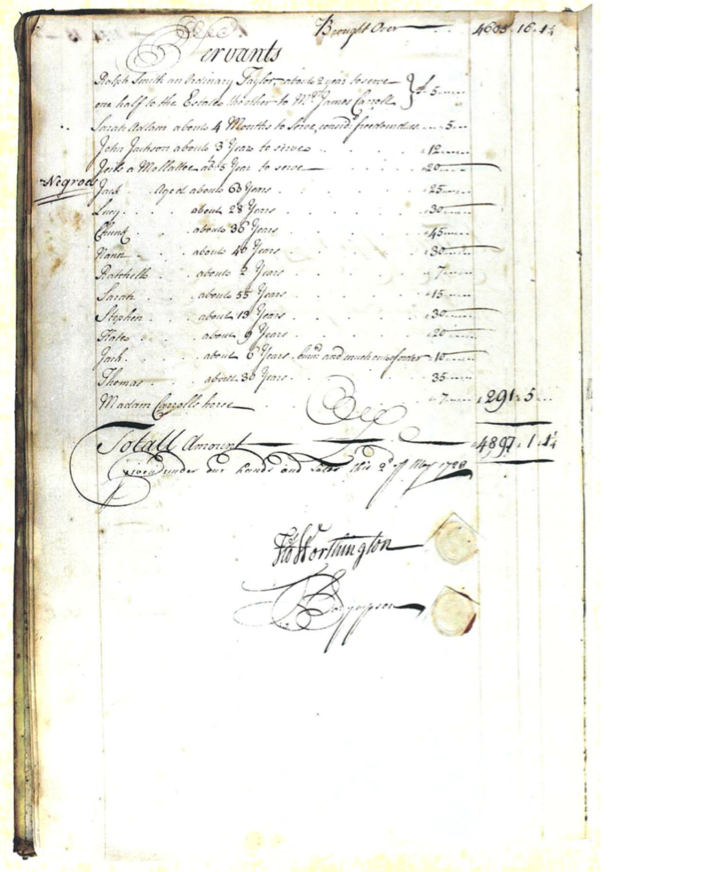 Brought Over 4605 16 1¼
Servants
Ralph Smith an ordinary Taylor about 2 year to serve
one half to the Estate the other to Mr. James Carroll } £ 5
Sarah about 4 Months to serve, 5
John Jackson about 3 Years to serve 12
a Mollattoe abt 5 Year to serve 20
Negroes
Jack Aged about 63 Years 25
Lucy about 28 Years 30
about 36 Years 45
about 40 Years 30
Ratchell about 2 Years 7
Sarah about 55 Years 15
Stephen about 13 Years 30
about 9 Years 20
Jack about 6 Years and much out of order 10
Thomas about 30 Years 35
Madam Carrolls horse 7 291 5
Totall Amount 4897 1 1¼
Given under our hands and Seles this 2d of May
Worthington